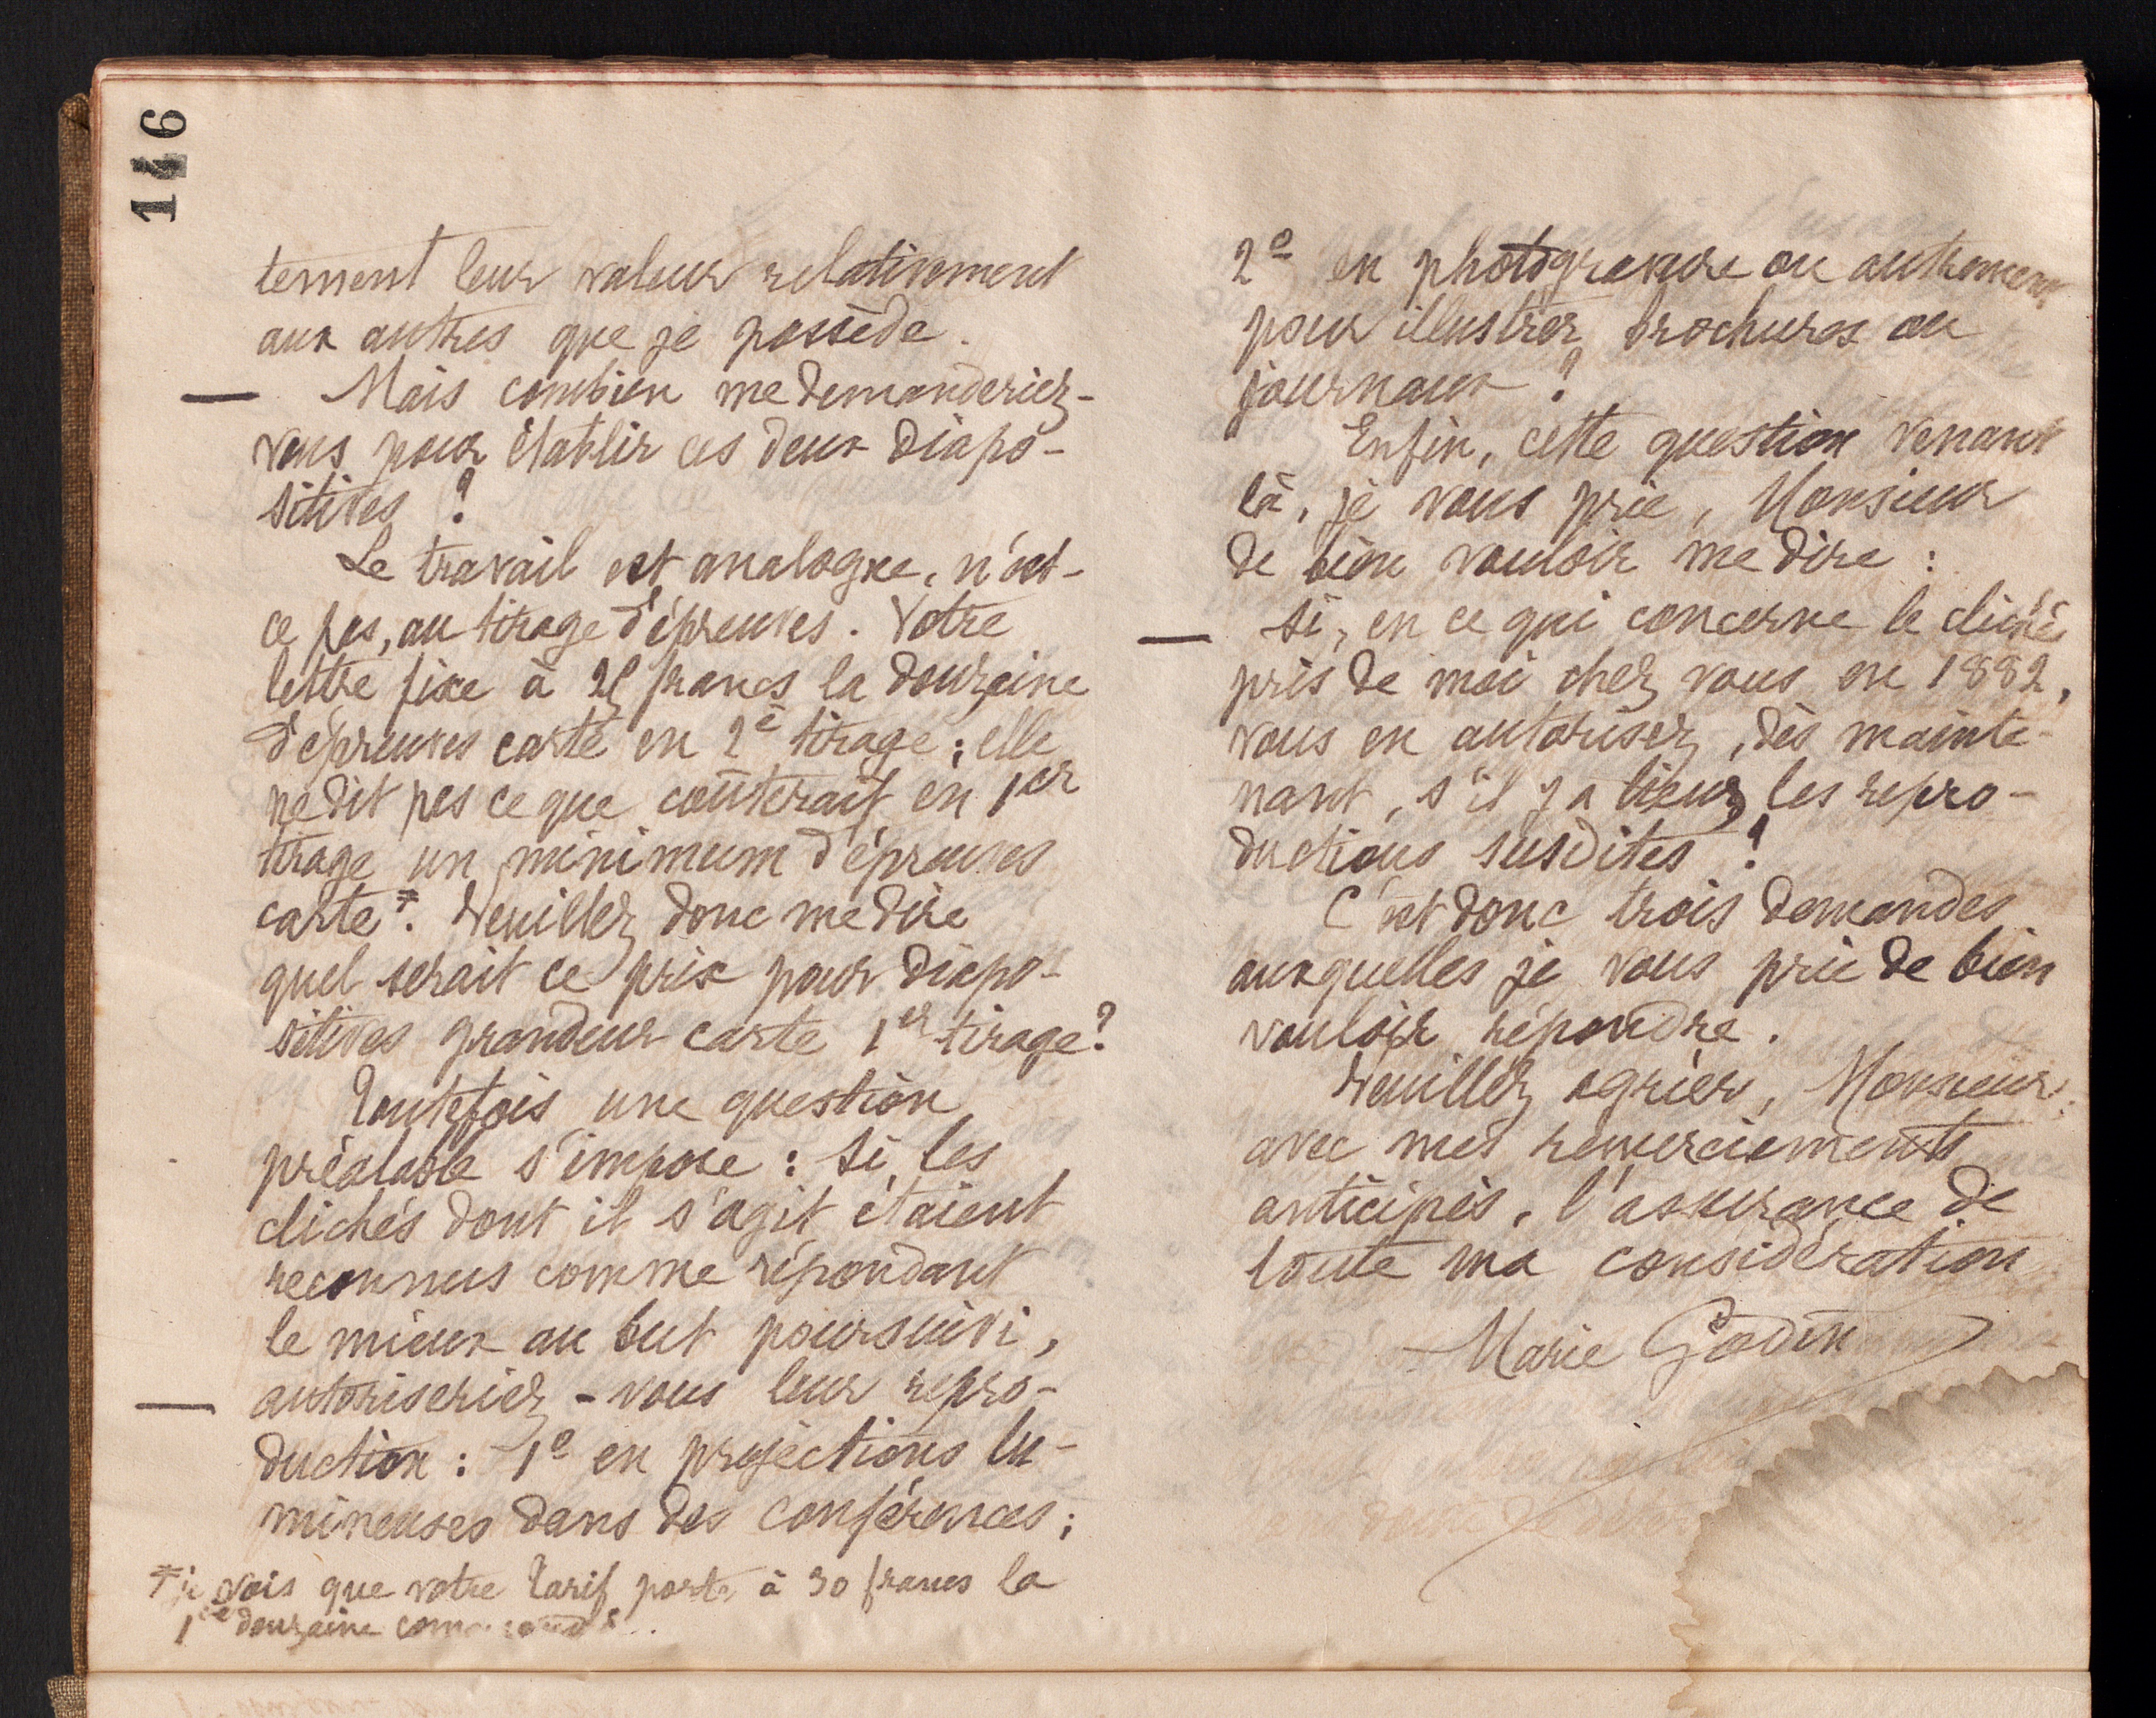 146
tement leur valeur relativement
aux autres que je possède.
— Mais combien me demanderiez-
vous pour établir ces deux diapo-
sitives ?
Le travail est analogue, n'est-
ce pas, au tirage d'épreuves. Votre
lettre fixe à 25 francs la douzaine
d'épreuves carte en 2e tirage ; elle
ne dit pas ce que coûterait en 1er
tirage un minimum d'épreuves
carte*. Veuillez donc me dire
quel serait ce prix pour diapo-
sitives grandeur carte 1er tirage?
Toutefois une question
préalable s'impose : Si les
clichés dont il s'agit étaient
reconnus comme répondant
le mieux au but poursuivi,
— autoriseriez-vous leur repro-
duction : 1o en projections lu-
mineuses dans des conférences ;
* je vois que votre tarif porte à 30 francs la
1re douzaine
2o en photogravure ou autrement
pour illustrer brochures ou
journaux ?
Enfin, cette question venant
là, je vous prie, Monsieur
de bien vouloir me dire :
— Si, en ce qui concerne le cliché
pris de moi chez vous en 1882,
vous en autorisez, dès mainte-
nant, s'il y a lieu, les repro-
ductions susdites ?
C'est donc trois demandes
auxquelles je vous prie de bien
vouloir répondre.
Veuillez agréer, Monsieur,
avec mes remerciements
anticipés, l'assurance de
toute ma considération
Marie Godin